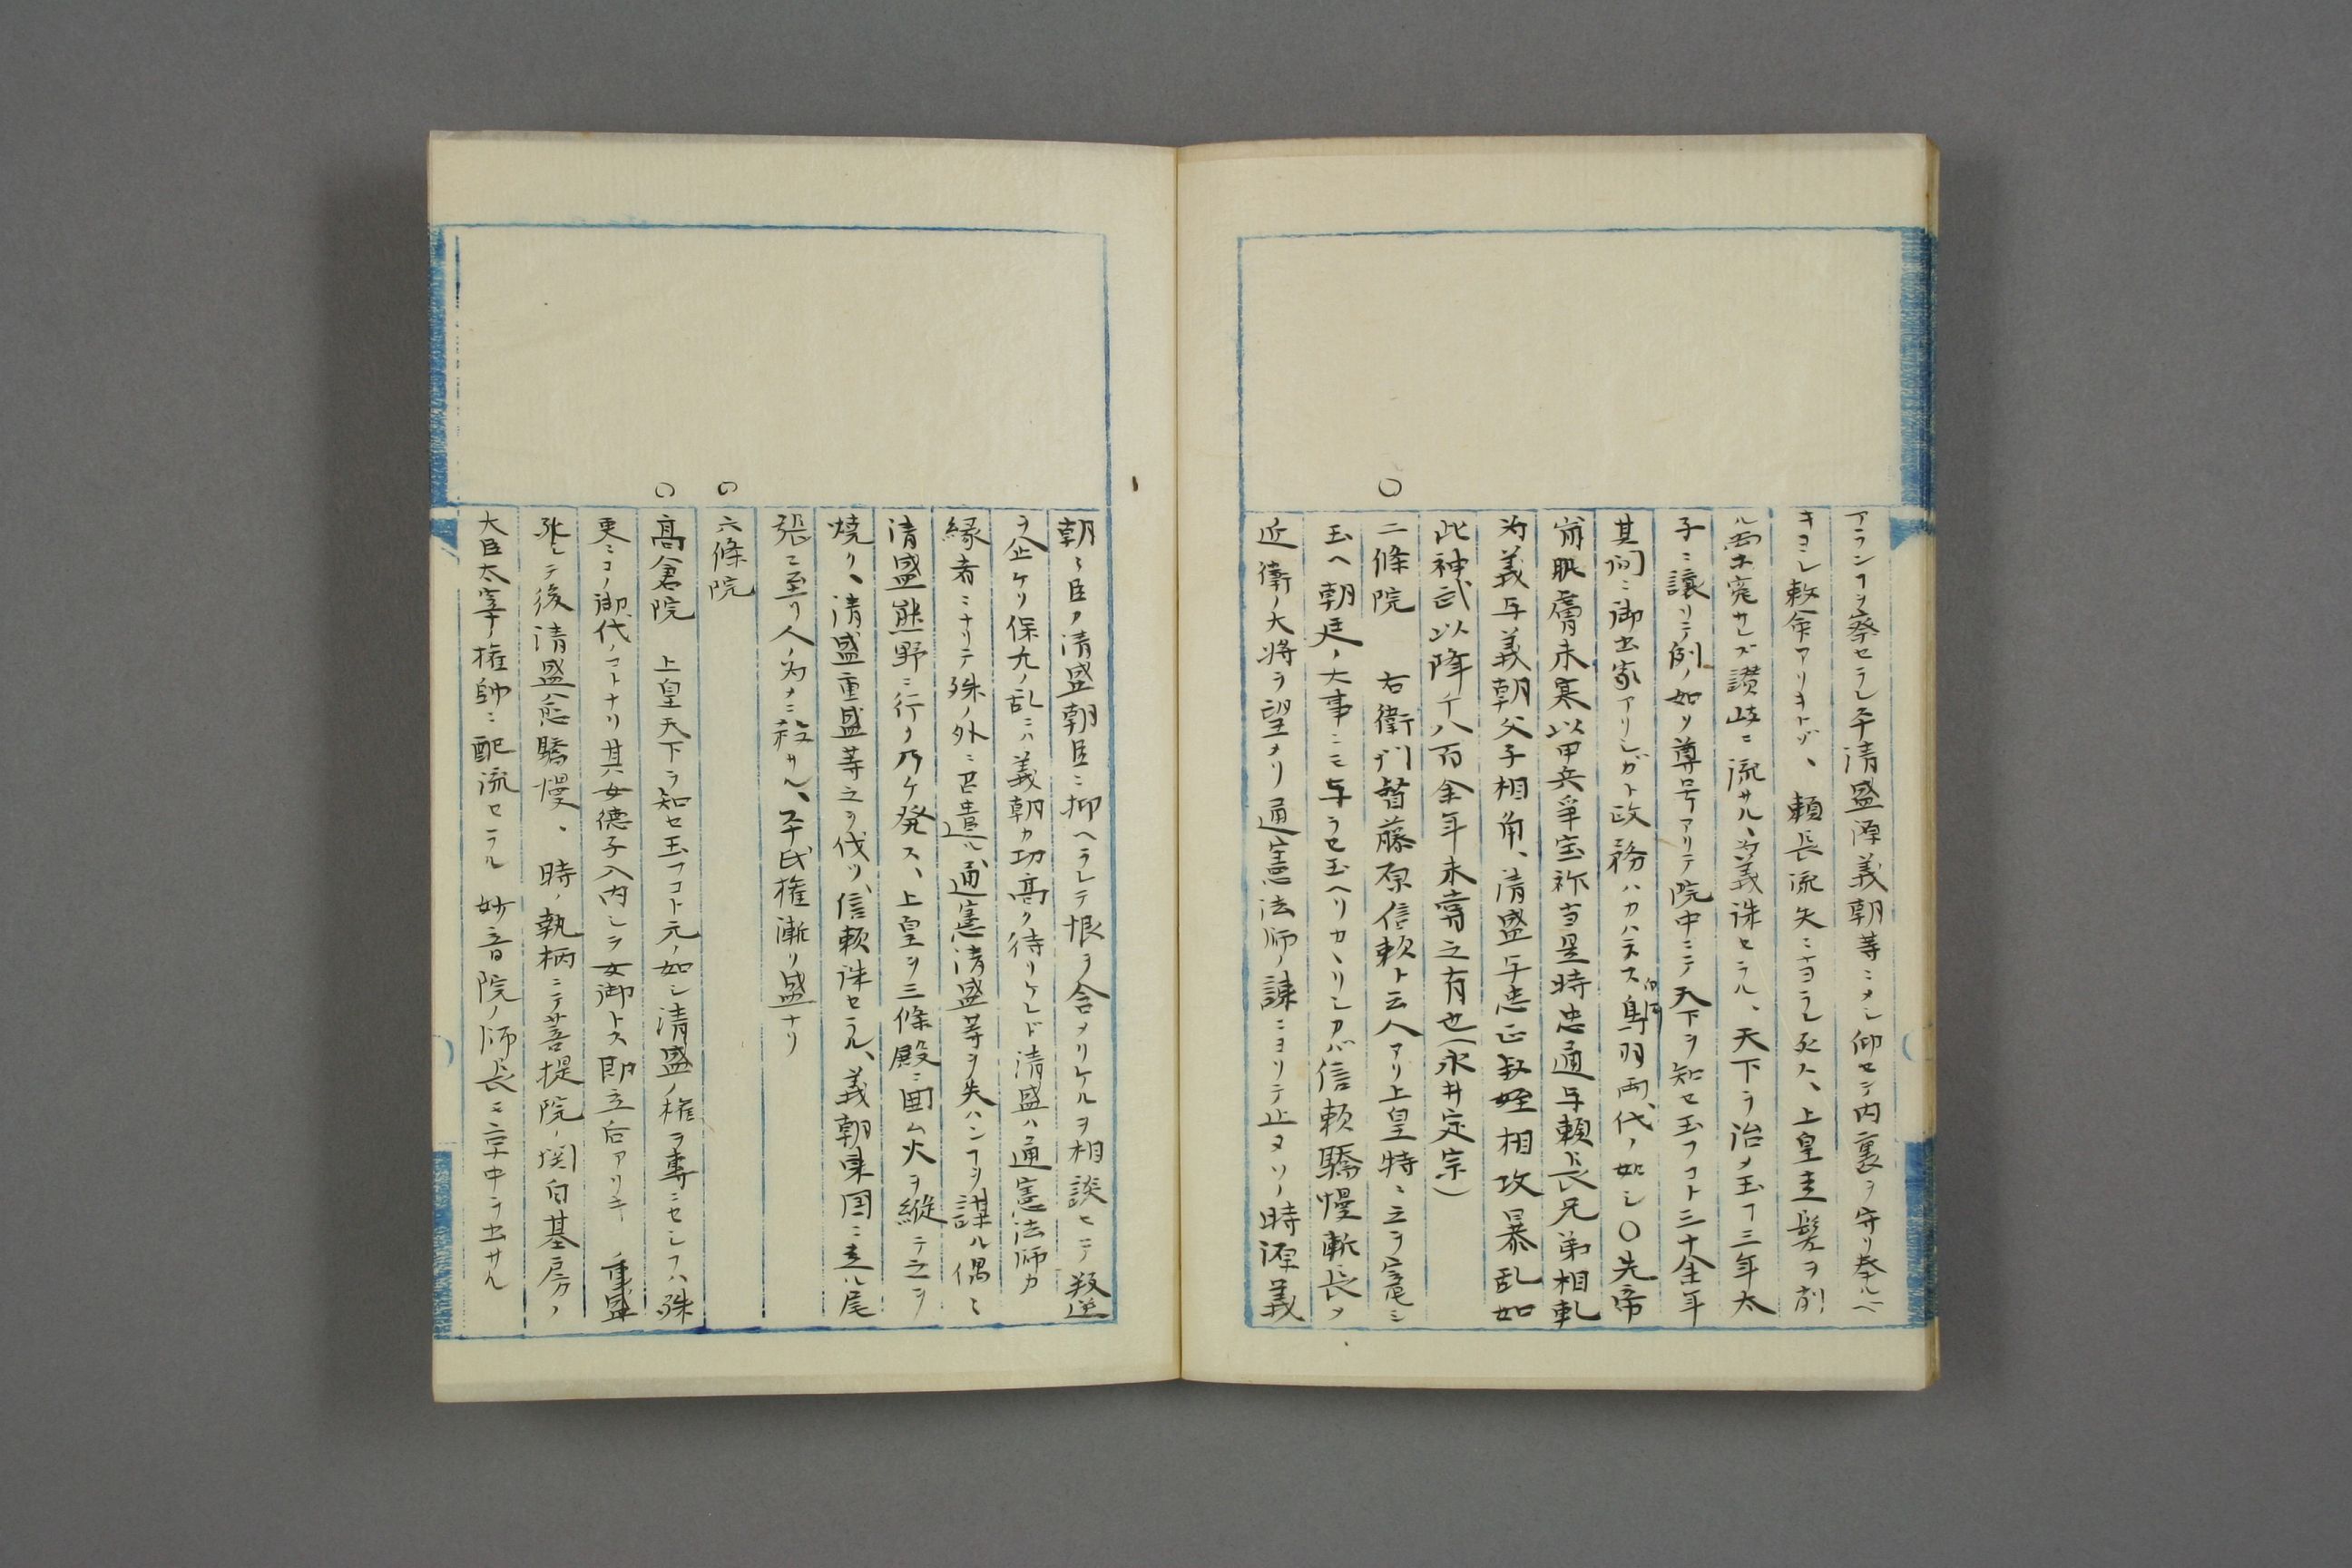 アランヿヲ察セラレ平清盛源義朝等ニメシ仰セテ内裏ヲ守リ奉ルベ
キヨシ敕命アリキトゾ、頼長流矢ニ当ラレ死ス、上皇圭髪ヲ剃
ル要亦寛サレズ讃岐ニ流サル、為義誅セラル、天下ヲ治メ玉フ三年太
子ニ譲リテ例ノ如ク尊号アリテ院中ニテ天下ヲ知セ玉フコト三十余年
其间ニ御出家アリシガト政務ハカハラス白河鳥羽両代ノ如シ〇先帝
崩肌膚未寒以甲兵争宝祚当是時忠通与頼長兄弟相軋
為義与義朝父子相角、清盛与忠正叔姪相攻暴乱如
此神武以降千八百余年未嘗之有也(永井定宗)
〇二條院　右衛門督藤原信頼ト云人アリ上皇特ニ之ヲ寵シ
玉ヘ朝廷ノ大事ニモ与ラセ玉ヘリカヽリシカバ信頼驕慢漸長メ
近衛ノ大将ヲ望メリ通憲法师ノ諌ニヨリテ止ヌソノ時源義
朝々臣ノ清盛朝臣ニ抑ヘラレテ恨ヲ含メリケルヲ相談セテ叛逆
ヲ企ケリ保九ノ乱ニハ義朝カ功高ク待リケレド清盛ハ通憲法师カ
縁者ニナリテ殊ノ外ニ召遣ル通憲清盛等ヲ失ハンヿヲ謀ル偶〻
清盛熊野ニ行ク乃ケ発ス、上皇ヲ三條殿ニ囲ム火ヲ縦テ之ヲ
焼ク、清盛重盛等之ヲ伐ツ、信頼誅セラル、義朝東国ニ走ル尾
張ニ至リ人ノ为メニ殺サル、平氏権漸ク盛ナリ
〇六條院
〇髙倉院　上皇天下ヲ知セ玉フコト元ノ如シ清盛ノ権ヲ専ニセシフハ殊
更ニコノ御代ノコトナリ其女徳子入内シラ女御トス即立后アリキ　重盛
死シテ後清盛愈驕慢、時ノ執柄ニテ菩提院ノ関白基房ノ
大臣太宰ノ権師ニ配流セラル　妙音院ノ师長ミ京中ヲ出サル